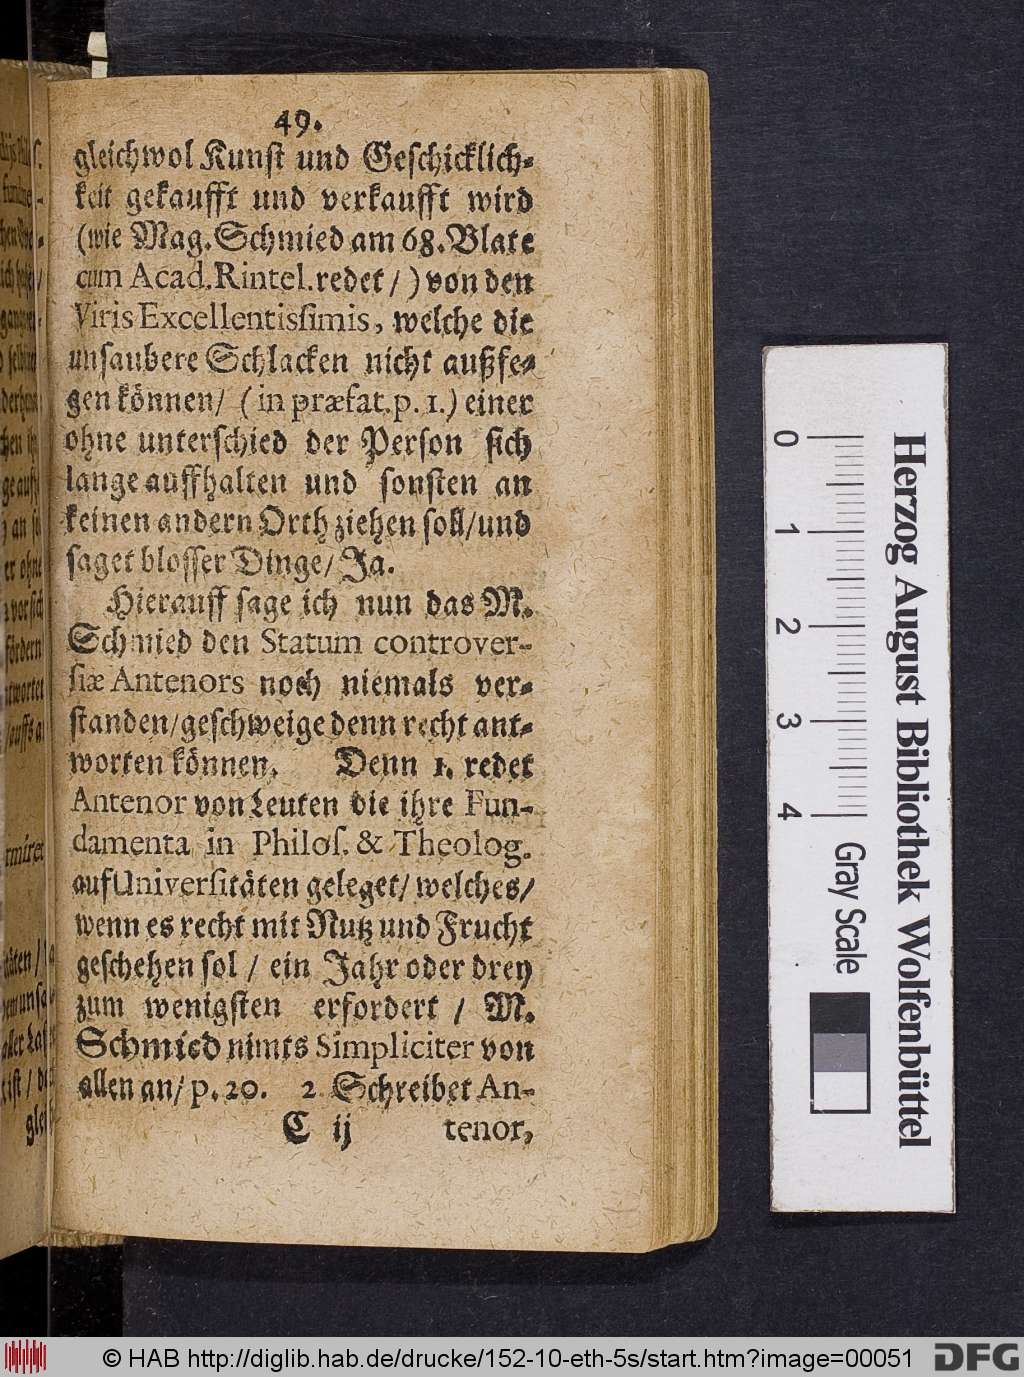 49.
gleichwol Kunst und Geschicklich-
keit gekaufft und verkaufft wird
(wie Mag. Schmied am 68. Blate
cum Acad. Rintel. redet / ) von den
Viris Excellentissimis, welche die
unsaubere Schlacken nicht außfe-
gen können/ (in præfat. p. 1.) einer
ohne unterschied der Person sich
lange auffhalten und sonsten an
keinen andern Orth ziehen soll/ und
saget blosser Dinge/ Ja.
Hierauff sage ich nun das M.
Schmied den Statum controver-
siæ Antenors noch niemals ver-
standen/ geschweige denn recht ant-
worten können. Denn 1. redet
Antenor von Leuten die ihre Fun-
damenta in Philos. & Theolog.
auf Universitäten geleget/ welches/
wenn es recht mit Nutz und Frucht
geschehen sol / ein Jahr oder drey
zum wenigsten erfordert / M.
Schmied nimts Simpliciter von
allen an/ p. 20. 2 Schreibet An-
C ij tenor,
0 1 2 3 4
Herzog August Bibliothek Wolfenbüttel
Gray Scale
© HAB http://diglib.hab.de/drucke/152-10-eth-5s/start.htm?image=00051
DFG